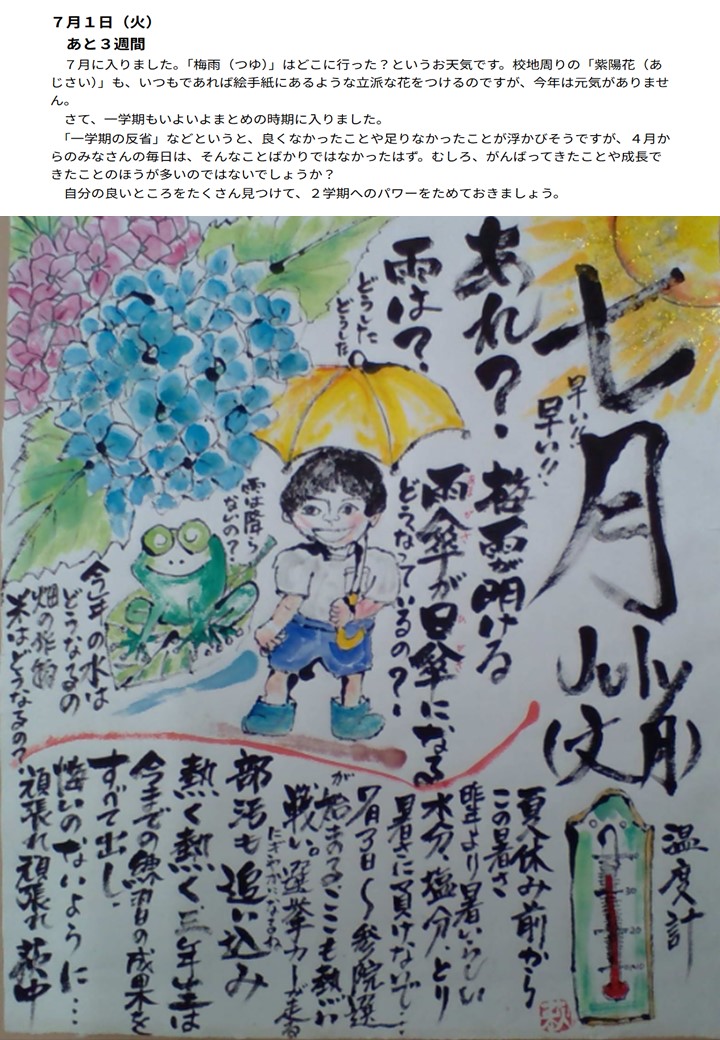 ７月１日（火）
あと３週間
７月に入りました。「梅雨（つゆ）」はどこに行った？というお天気です。校地周りの「紫陽花（あ
じさい）」も、いつもであれば絵手紙にあるような立派な花をつけるのですが、今年は元気がありませ
ん。
さて、一学期もいよいよまとめの時期に入りました。
「一学期の反省」などというと、良くなかったことや足りなかったことが浮かびそうですが、４月か
らのみなさんの毎日は、そんなことばかりではなかったはず。むしろ、がんばってきたことや成長で
きたことのほうが多いのではないでしょうか？
自分の良いところをたくさん見つけて、２学期へのパワーをためておきましょう。
七月
July
(文月)
早い!!
早い!!
あれ？
梅雨が明ける
雨は？
どうした
どうした
雨傘が日傘になる
どうなっているの？
雨は降ら
ないの？
今年の水は
どうなるの
畑の作物
米はどうなるの？
温度計
夏休み前から
この暑さ
昨年より暑いらしい
水分、塩分、とり
暑さに負けないで…
7月3日〜参院選
が始まるここも熱い
戦い。選挙カーが走る
にぎやかになるね
部活も追い込み
熱く熱く、三年生は
今までの練習の成果を
すべて出し、
悔いのないように…
頑張れ頑張れ 萩中
萩